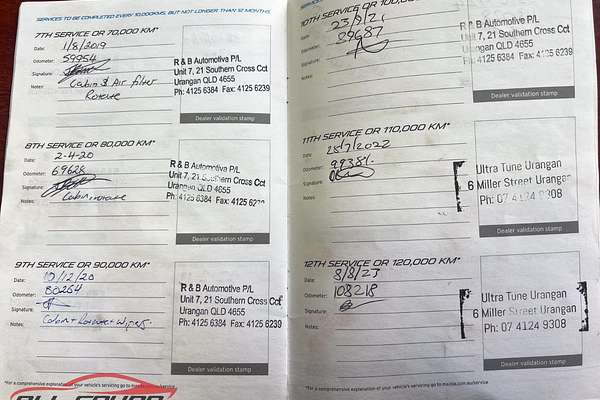 SERVICES TO BE COMPLETED EVERY 10,000KMS, BUT NOT LONGER THAN 12 MONTHS
7TH SERVICE OR 70,000 KM*
Date: 1/8/2019
Odometer: 59954
Signature:
Notes: Cabin & Air filter
Rotate
R & B Automotive P/L
Unit 7, 21 Southern Cross Cct
Urangan QLD 4655
Ph: 4125 6384 Fax: 4125 6239
Dealer validation stamp
8TH SERVICE OR 80,000 KM*
Date: 2-4-20
Odometer: 69628
Signature:
Notes: Cabin rotate
R & B Automotive P/L
Unit 7, 21 Southern Cross Cct
Urangan QLD 4655
Ph: 4125 6384 Fax: 4125
Dealer validation stamp
9TH SERVICE OR 90,000 KM*
Date: /12/20
Odometer: 80264
Signature:
Notes: Cabin + Rotate + Wipers.
R & B Automotive P/L
Unit 7, 21 Southern Cross Cct
Urangan QLD 4655
Ph: 4125 6384 Fax: 4125 6239
Dealer validation stamp
*For a comprehensive explanation of your vehicle's servicing go to mazda.com.au/service
10TH SERVICE OR 100,000
Date: 23/9/21
Odometer: 89687
Signature:
Notes:
R & B Automotive P/L
Unit 7, 21 Southern Cross
Urangan QLD 4655
Ph: 4125 6384 Fax:
Dealer validation stamp
11TH SERVICE OR 110,000 KM*
Date: 25/7/2022
Odometer: 99381
Signature:
Notes:
Ultra Tune Urangan
6 Miller Street Urangan
Ph: 07 4124 9308
Dealer validation stamp
12TH SERVICE OR 120,000 KM*
Date: 8/8/23
Odometer: 108218
Signature:
Notes:
Ultra Tune Urangan
6 Miller Street Urangan
Ph: 07 4124 9308
Dealer validation stamp
*For a comprehensive explanation of your vehicle's servicing go to mazda.com.au/service